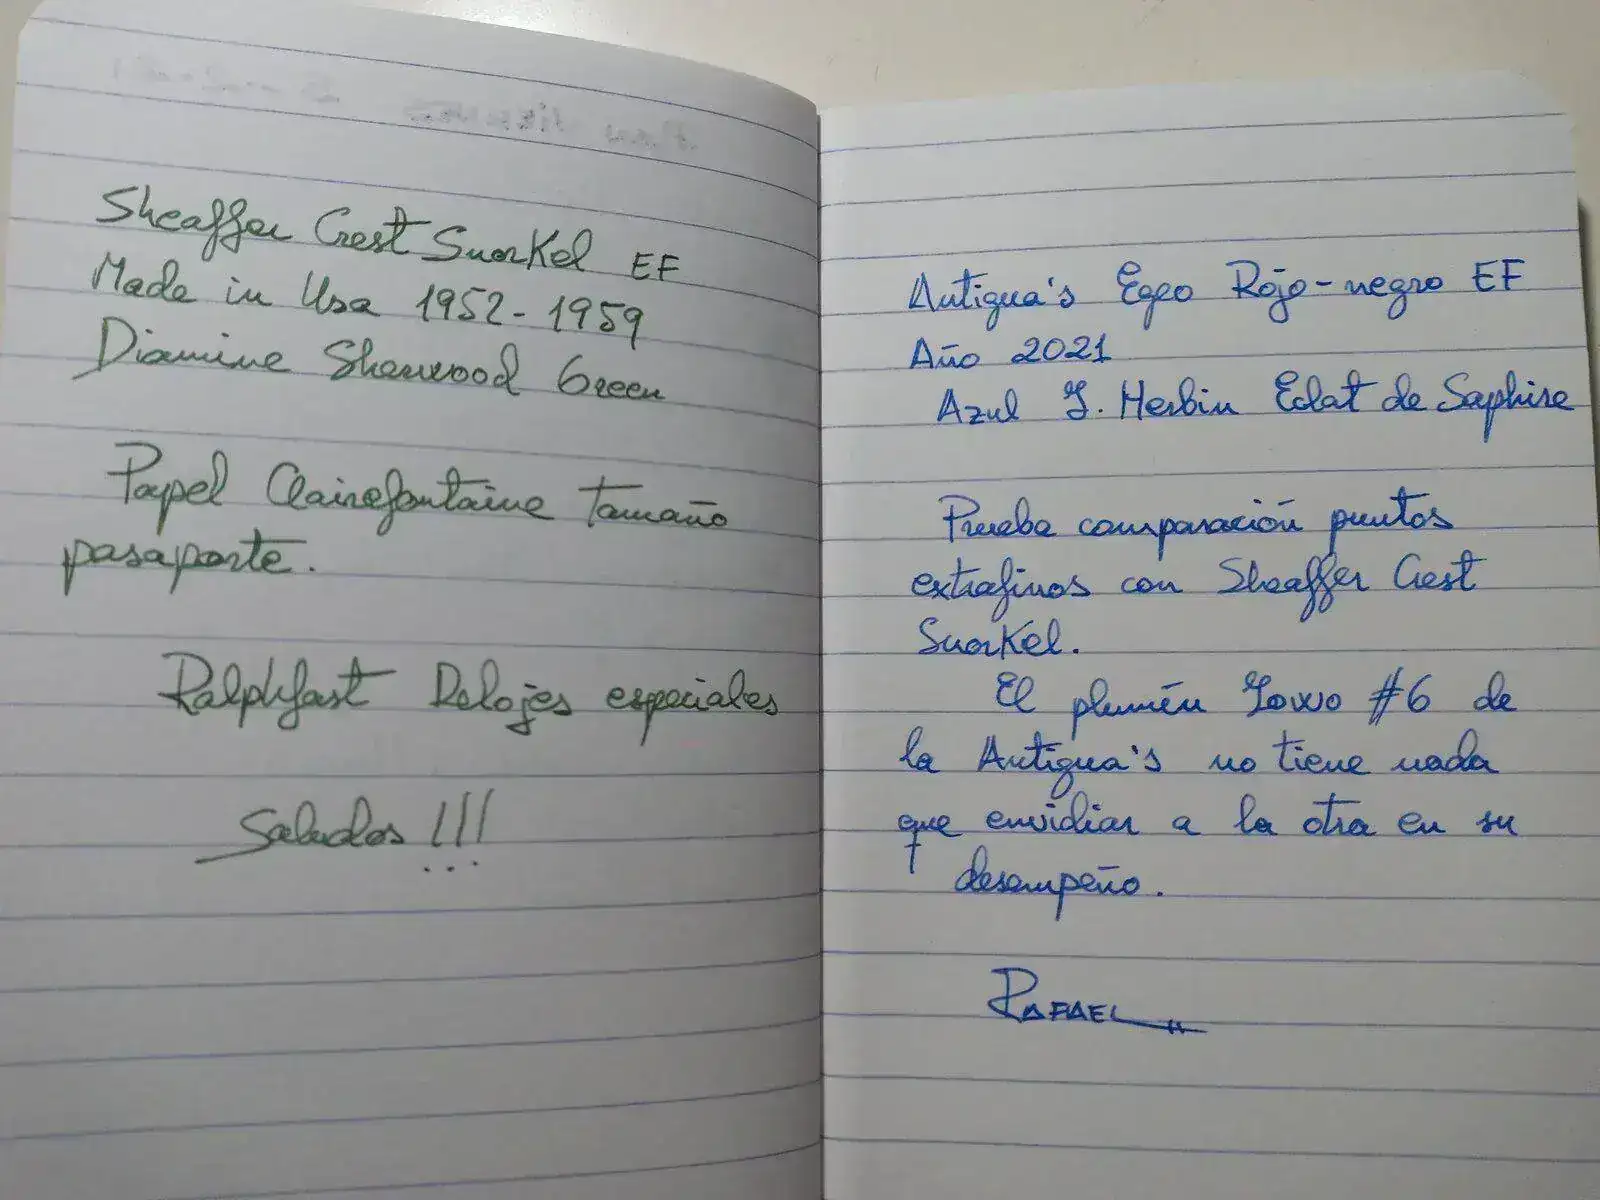 Sheaffer Crest Snorkel EF
Made in Usa 1952-1959
Diamine Sherwood Green
Papel Clairefontaine tamaño
pasaporte.
Ralphfast Relojes especiales
Saludos !!!
Antigua's Egeo Rojo-negro EF
Año 2021
Azul J. Herbin Eclat de Saphire
Prueba comparación puntos
extrafinos con Sheaffer Crest
Snorkel.
El plumín Jowo #6 de
la Antigua's no tiene nada
que envidiar a la otra en su
desempeño.
RAFAEL